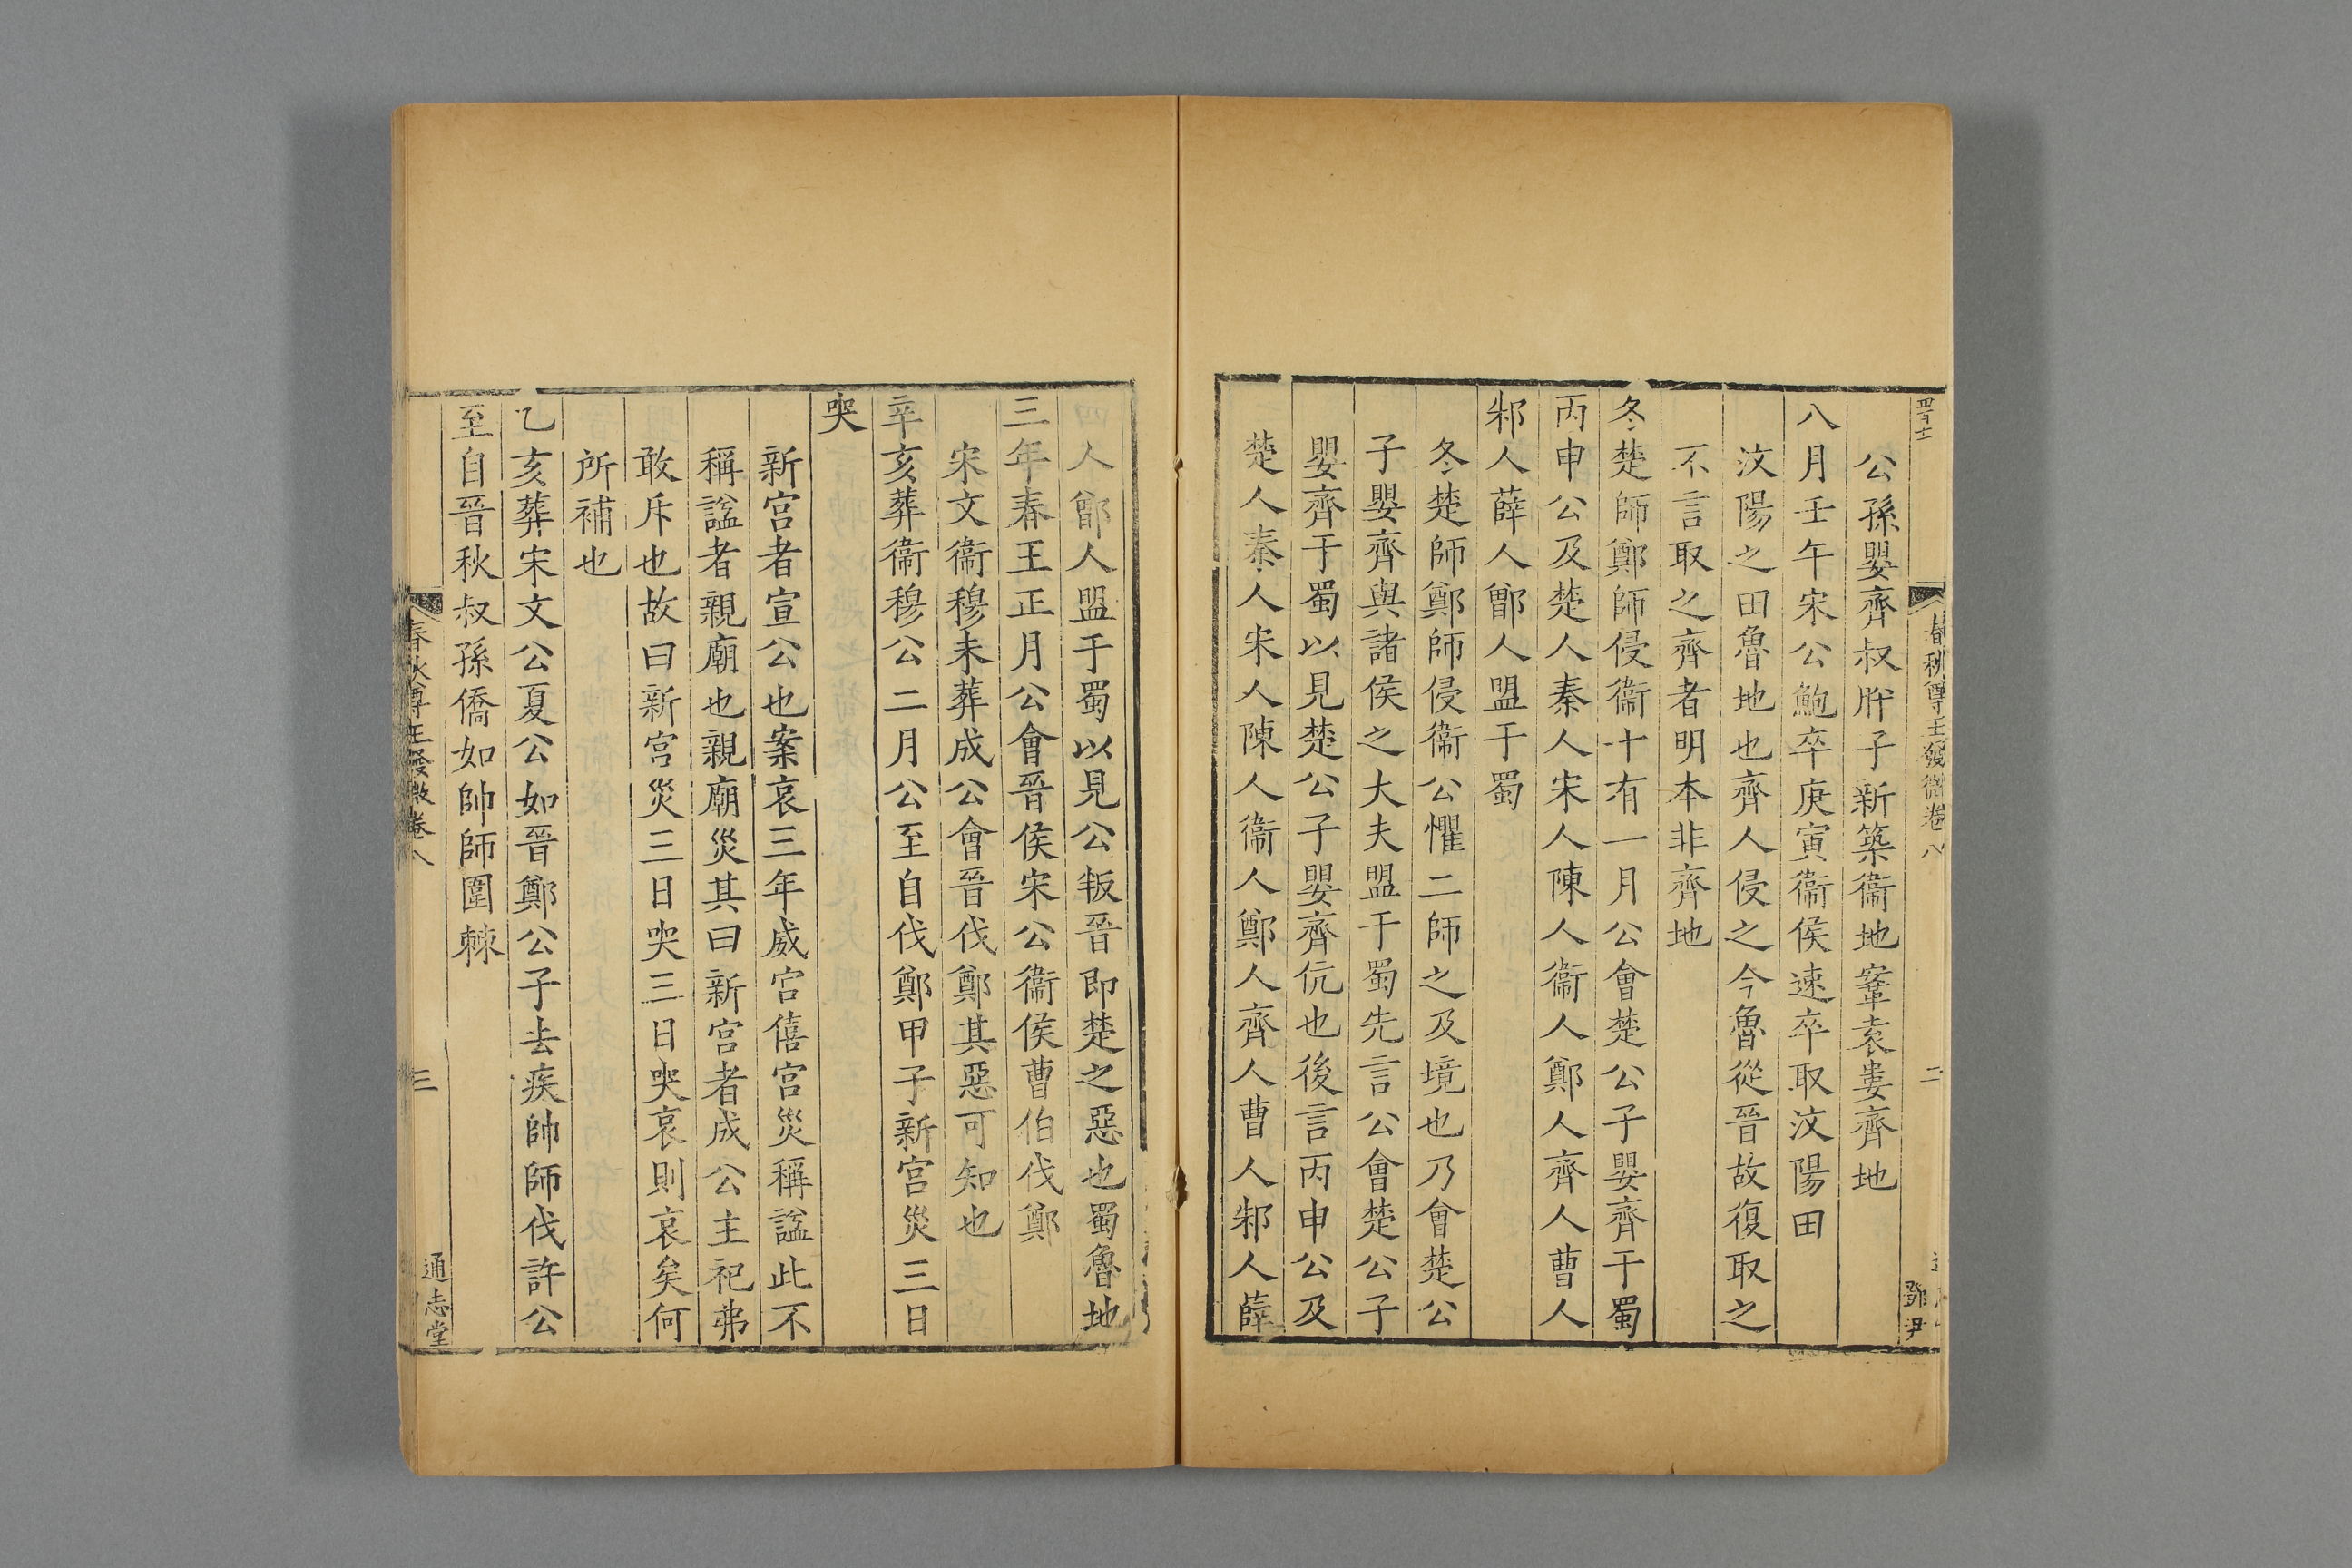 四百十
春秋尊王發微卷八
二
鄧尹
公孫嬰齊叔肸子新築衞地鞌袁婁齊地
八月壬午宋公鮑卒庚寅衞侯速卒取汶陽田
汶陽之田魯地也齊人侵之今魯從晉故復取之
不言取之齊者明本非齊地
冬楚師鄭師侵衞十有一月公會楚公子嬰齊于蜀
丙申公及楚人秦人宋人陳人衞人鄭人齊人曹人
邾人薛人鄫人盟于蜀
冬楚師鄭師侵衞公懼二師之及境也乃會楚公
子嬰齊與諸侯之大夫盟于蜀先言公會楚公子
嬰齊于蜀以見楚公子嬰齊伉也後言丙申公及
楚人秦人宋人陳人衞人鄭人齊人曹人邾人薛
四人鄫人盟于蜀以見公叛晉即楚之惡也蜀魯地
三年春王正月公會晉侯宋公衞侯曹伯伐鄭
宋文衞穆未葬成公會晉伐鄭其惡可知也
辛亥葬衞穆公二月公至自伐鄭甲子新宮災三日
哭
新宮者宣公也案哀三年威宮僖宮災稱諡此不
稱諡者親廟也親廟災其曰新宮者成公主祀弗
敢斥也故曰新宮災三日哭三日哭哀則哀矣何
所補也
乙亥葬宋文公夏公如晉鄭公子去疾帥師伐許公
至自晉秋叔孫僑如帥師圍棘
春秋尊王發微卷八
三
通志堂